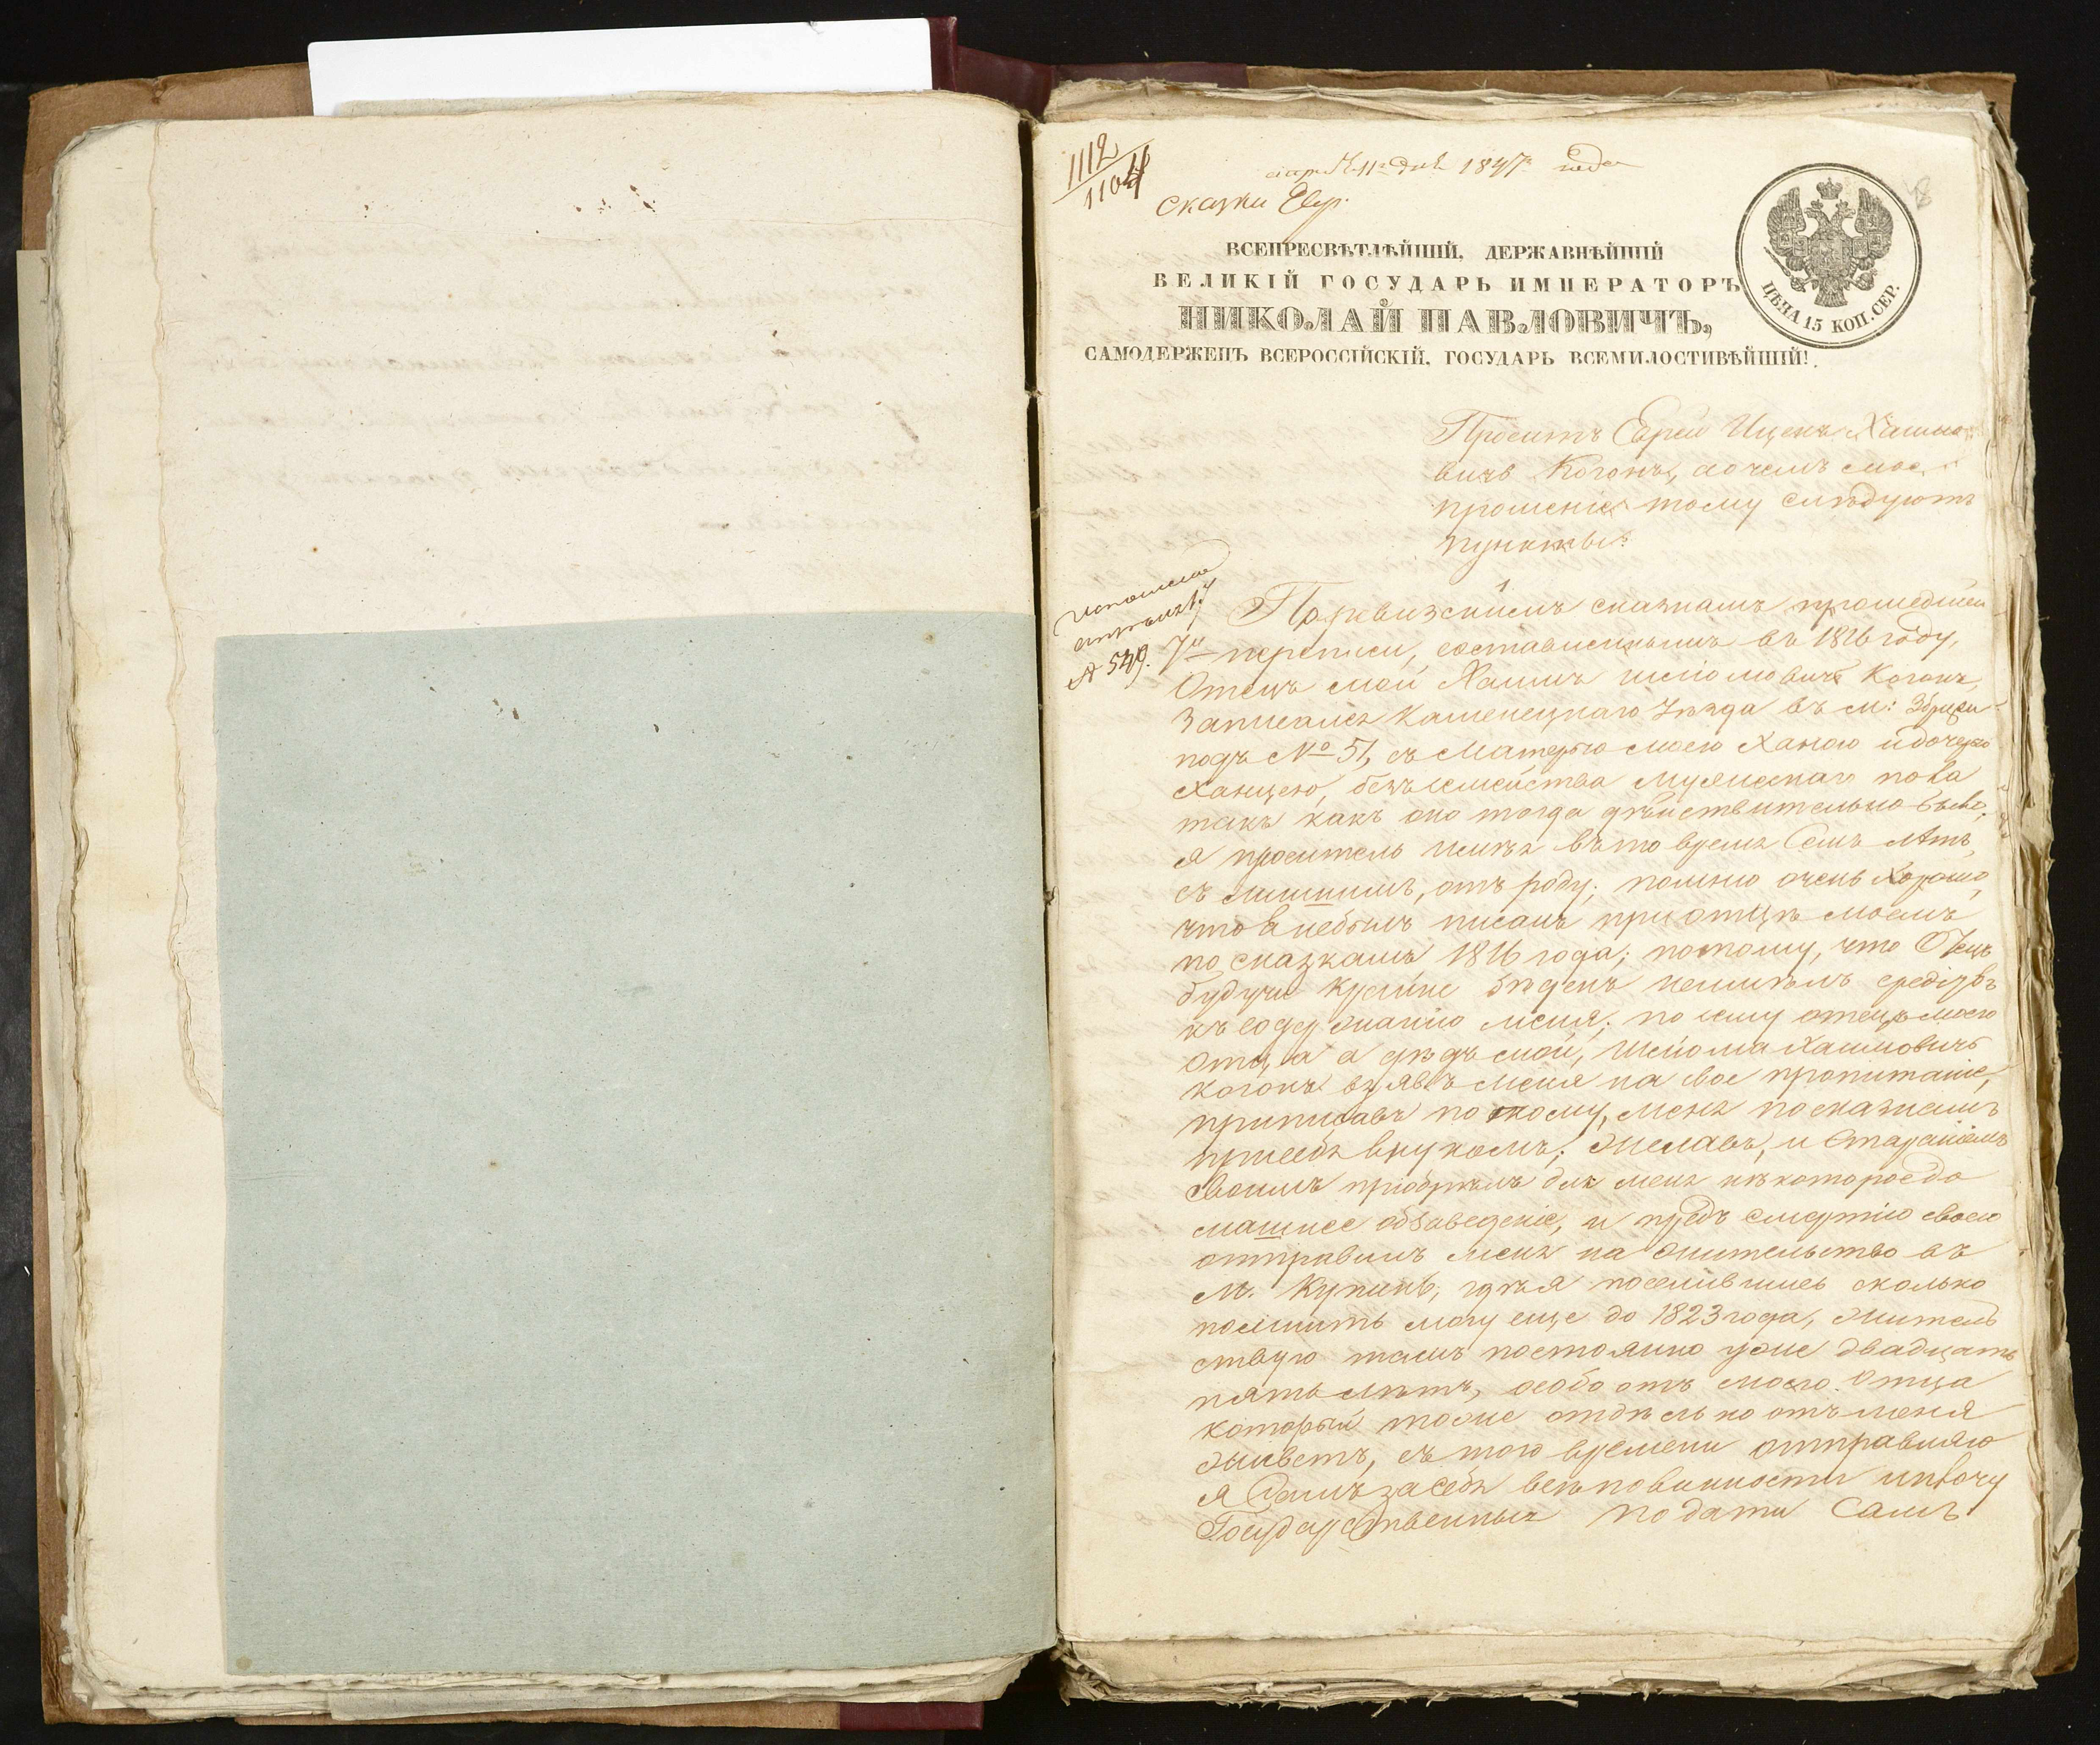 1112
1104
1847 года
Сказки Евр.
48
ВСЕПРЕСВѢТЛѢЙШІЙ, ДЕРЖАВНѢЙШІЙ
ВЕЛИКІЙ ГОСУДАРЬ ИМПЕРАТОРЪ
НИКОЛАЙ ПАВЛОВИЧЪ,
САМОДЕРЖЕЦЪ ВСЕРОССІЙСКІЙ, ГОСУДАРЬ ВСЕМИЛОСТИВѢЙШІЙ!
ЦѢНА 15 КОП. СЕР.
Проситъ Еврей Ицекъ Хаимо
вичъ Когонъ, а о чемъ мое
прошеніе тому слѣдуютъ
пункты:
1
По ревизскимъ сказкамъ прошедшей
№ 549.
7й переписи, составленнымъ въ 1816 году,
Отецъ мой Хаимъ Шліомовичъ Когонъ,
записался Каменецкаго Уѣзда въ м:
подъ № 51, съ Матерью моею Ханою и дочерью
Ханцею, безъ семейства мужескаго пола
такъ какъ оно тогда дѣйствительно было;
я проситель имѣя въ то время семь лѣтъ,
съ лишнимъ, отъ роду; помню очень хорошо,
что я небылъ писанъ при отцѣ моемъ
по сказкамъ 1816 года; потому, что Отецъ
будучи крайне бѣденъ неимѣлъ средствъ
къ содержанію меня; по сему отецъ моего
отца а дѣдъ мой, Шліома Хаимовичъ
Когонъ взявъ меня на свое пропитаніе,
приписавъ по тому, меня по сказкамъ
при себѣ внукомъ; желавъ, и стараніемъ
своимъ пріобрѣлъ для меня нѣкоторое до
машнее обзаведеніе, и предъ смертію своею
отправилъ меня на жительство въ
м. Купинъ, гдѣ я поселившись сколько
помнить могу еще до 1823 года, житель
ствую тамъ постоянно уже двадцать
пять лѣтъ, особо отъ моего отца
который тоже отдѣльно отъ меня
живетъ, съ того времени отправляю
я самъ за себя всѣ повинности и плачу
Государственныя подати самъ